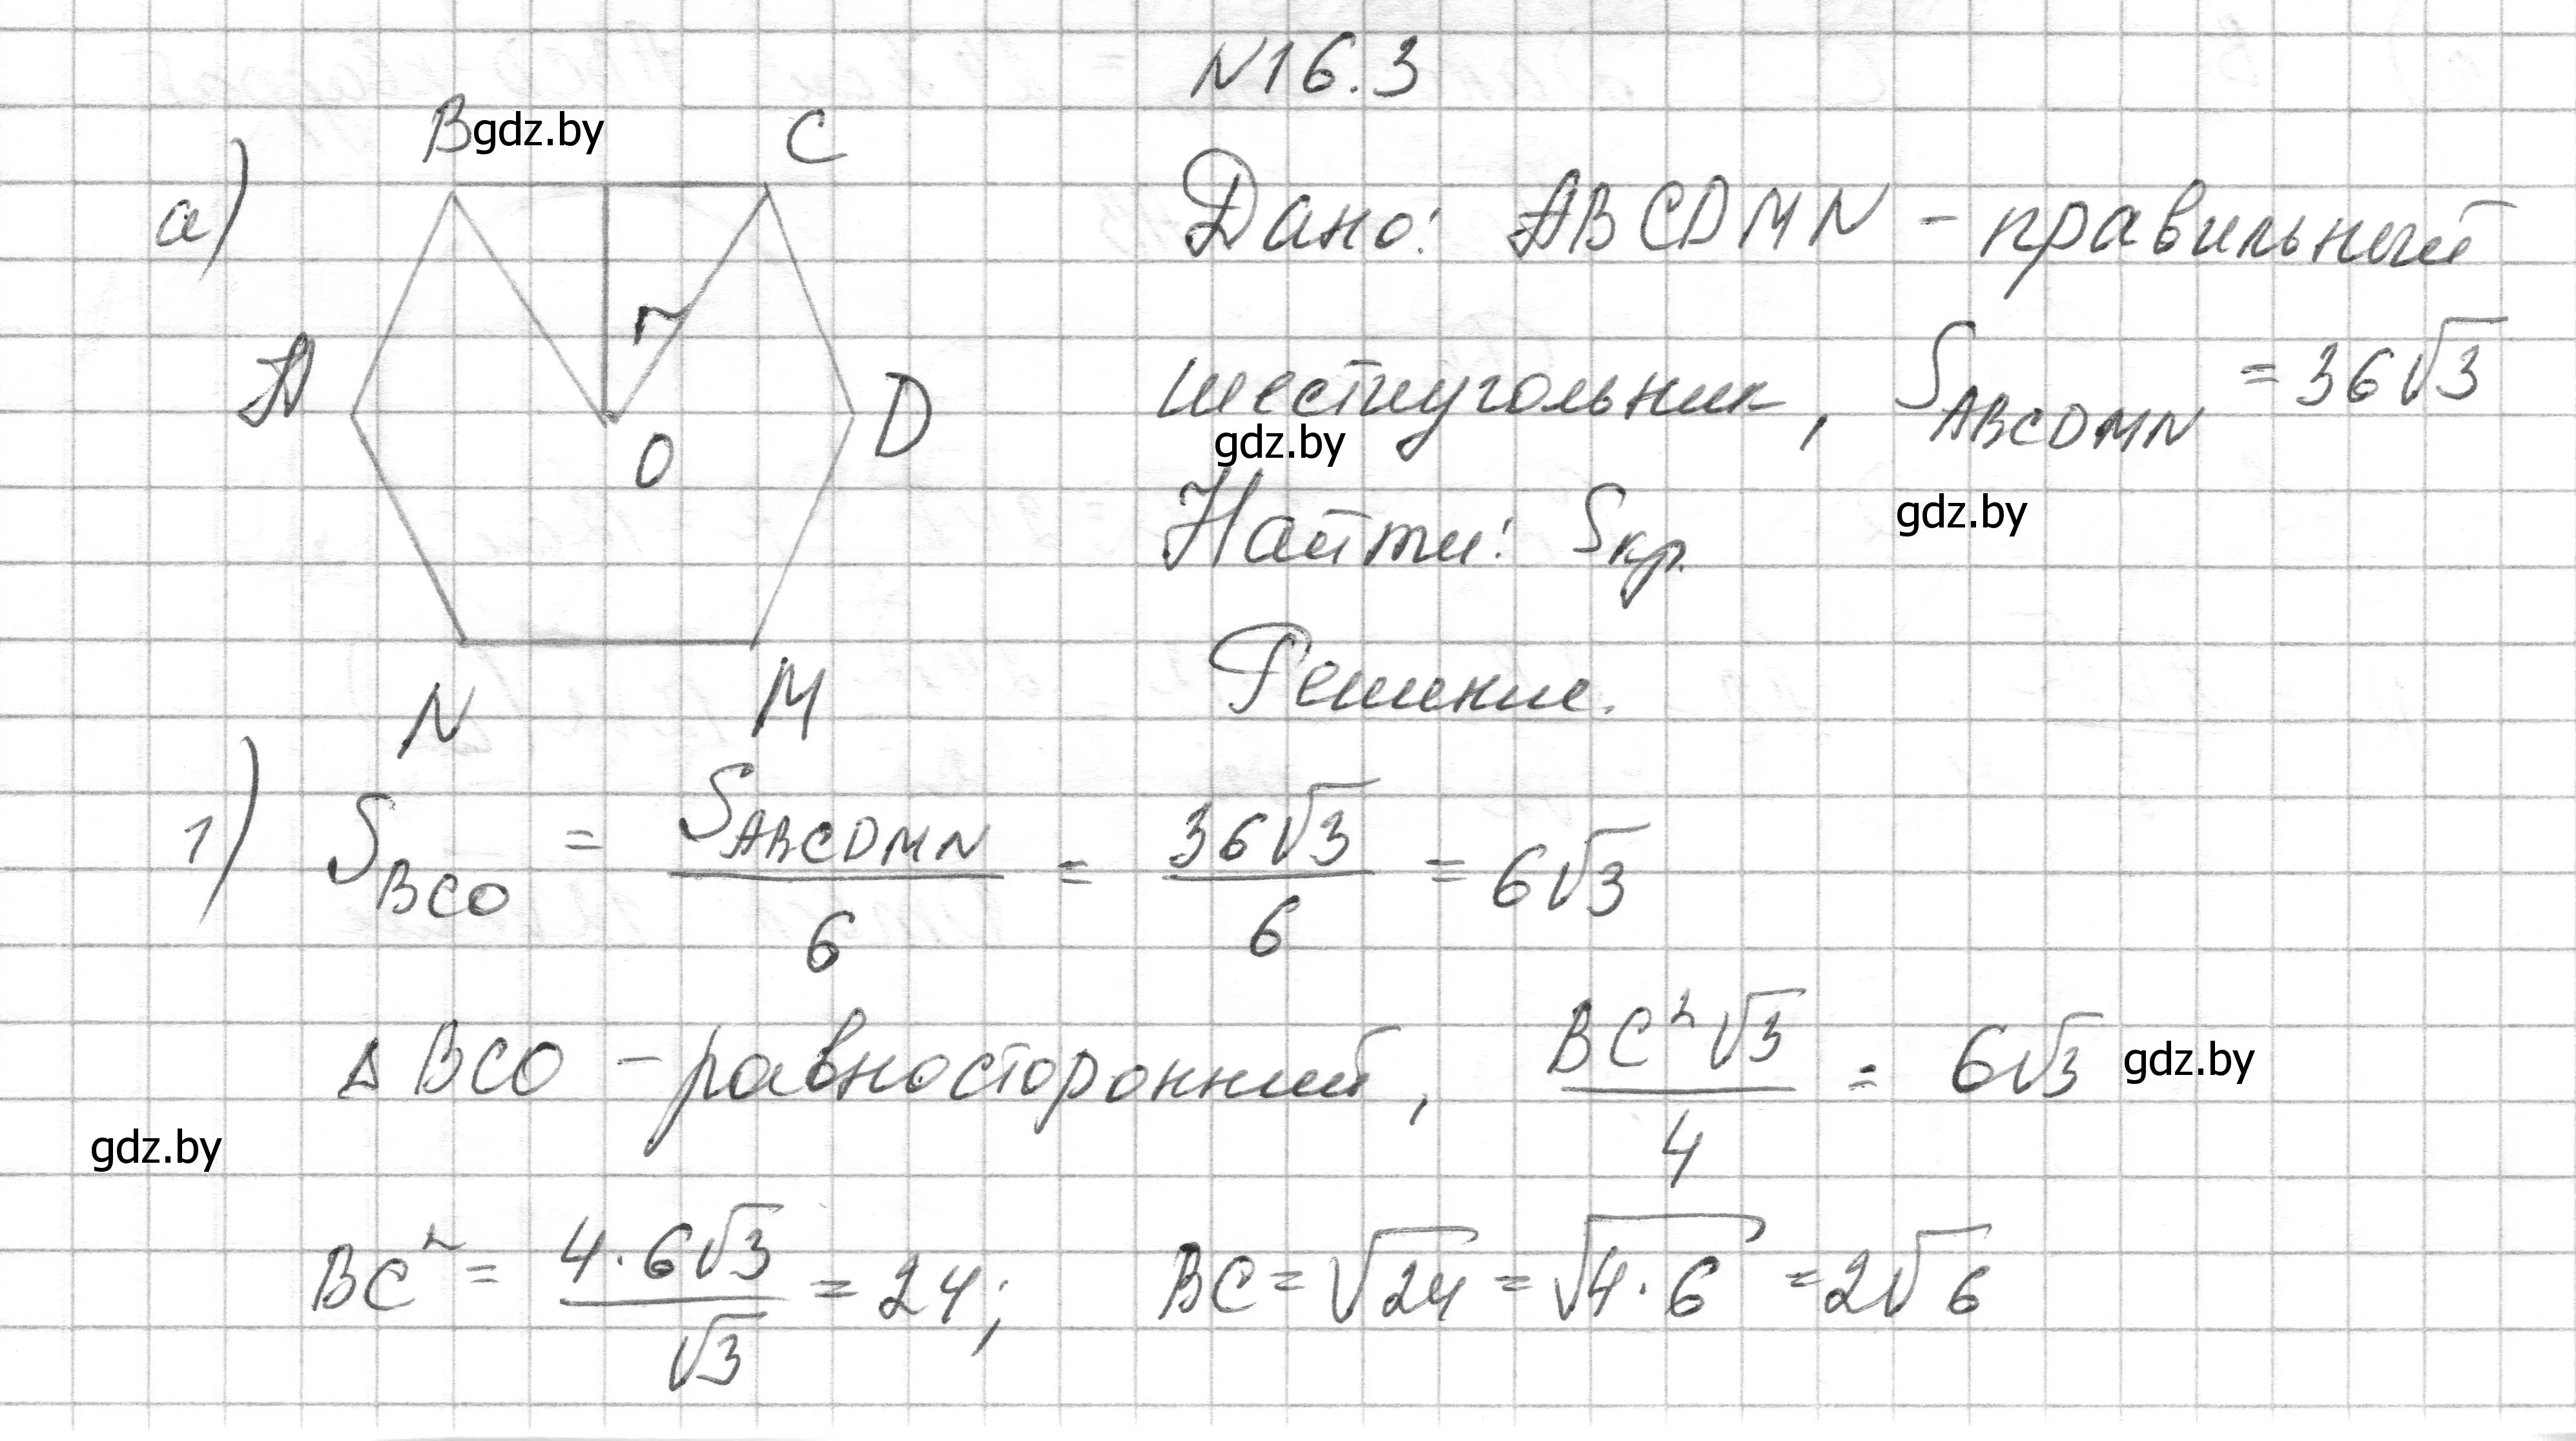 N16.3
B gdz.by C
а)
Дано: ABCDMN - правильный
A r D
O
шестиугольник, S_ABCDMN = 36√3
gdz.by
Найти: Sкр. gdz.by
Решение.
N M
1) S_BCO = S_ABCDMN / 6 = 36√3 / 6 = 6√3
Δ BCO - равносторонний, BC²√3 / 4 = 6√3 gdz.by
gdz.by
BC² = 4·6√3 / √3 = 24; BC = √24 = √4·6 = 2√6